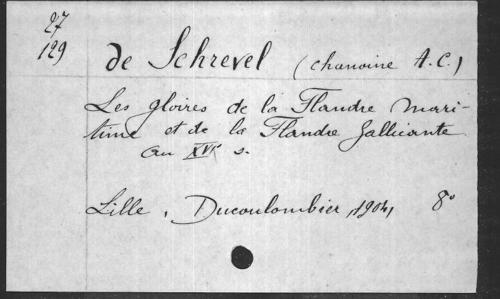 27
129
de Schrevel (chanoine A.C.)
Les gloires de la Flandre mari-
time et de la Flandre Gallicante
au XVIe s.
Lille, Ducoulombier, 1904, 8°